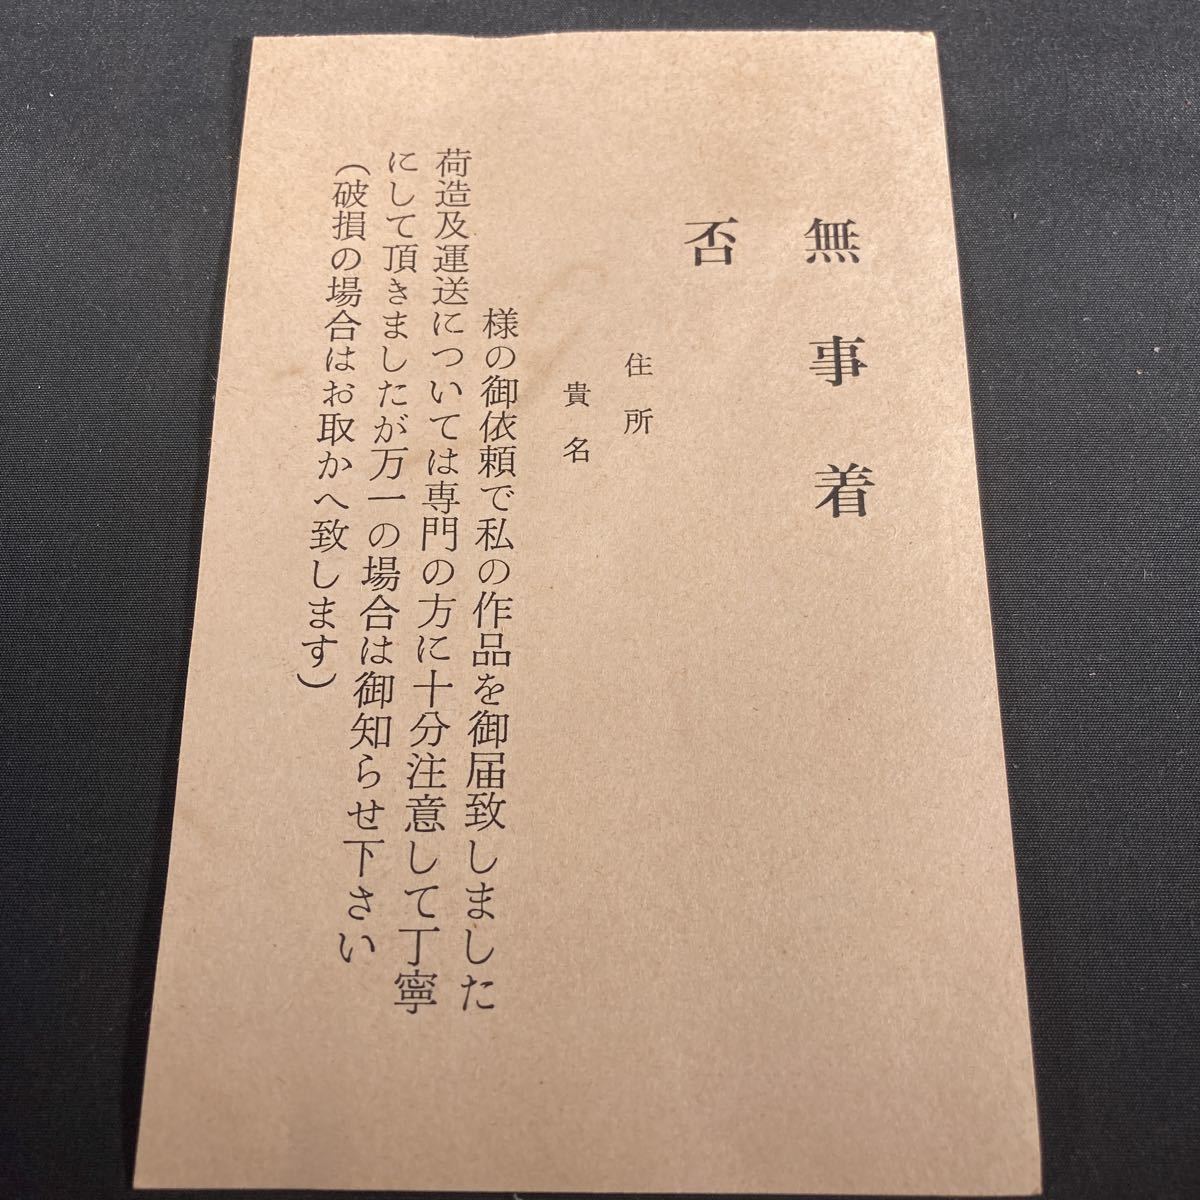 無事着
否
住所
貴名
様の御依頼で私の作品を御届致しました
荷造及運送については専門の方に十分注意して丁寧
にして頂きましたが万一の場合は御知らせ下さい
（破損の場合はお取かへ致します）